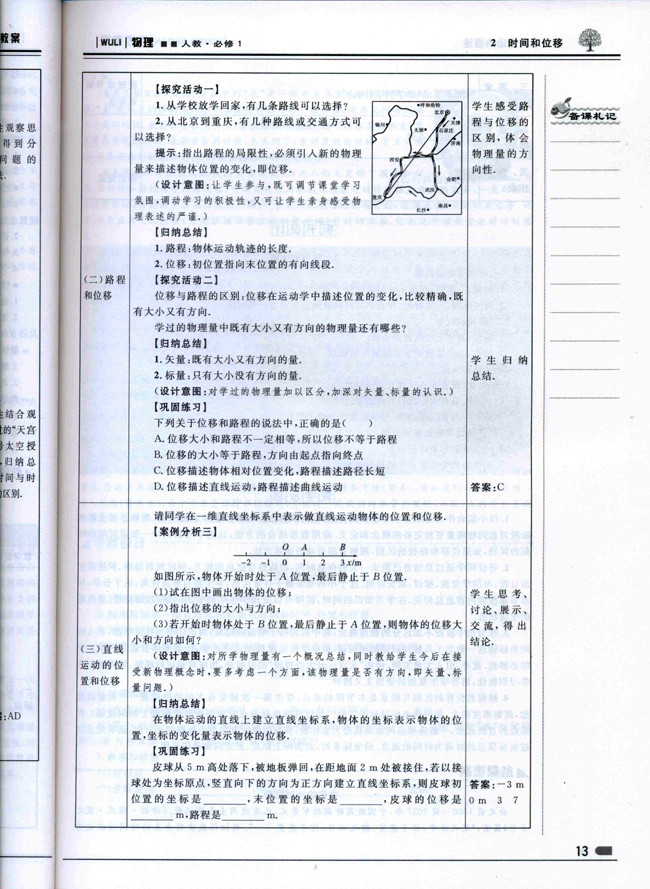 教案
WULI 物理 ■■ 人教·必修1
2 时间和位移
备课札记
生观察思
得到分
问题的
生结合观
的“天宫
号太空授
,归纳总
时间与时
区别.
:AD
(二)路程
和位移
【探究活动一】
1.从学校放学回家,有几条路线可以选择?
2.从北京到重庆,有几种路线或交通方式可
以选择?
提示:指出路程的局限性,必须引人新的物理
量来描述物体位置的变化,即位移.
(设计意图:让学生参与,既可调节课堂学习
氛围,调动学习的积极性,又可让学生亲身感受物
理表述的严谨.)
呼和浩特
北京
天津
银川
太原
石家庄
济南
西安
合肥
武汉
重庆
南昌
长沙
【归纳总结】
1.路程:物体运动轨迹的长度.
2.位移:初位置指向末位置的有向线段.
【探究活动二】
位移与路程的区别:位移在运动学中描述位置的变化,比较精确,既
有大小又有方向.
学过的物理量中既有大小又有方向的物理量还有哪些?
【归纳总结】
1.矢量:既有大小又有方向的量.
2.标量:只有大小没有方向的量.
(设计意图:对学过的物理量加以区分,加深对矢量、标量的认识.)
【巩固练习】
下列关于位移和路程的说法中,正确的是(  )
A.位移大小和路程不一定相等,所以位移不等于路程
B.位移的大小等于路程,方向由起点指向终点
C.位移描述物体相对位置变化,路程描述路径长短
D.位移描述直线运动,路程描述曲线运动
学生感受路
程与位移的
区别,体会
物理量的方
向性.
学生归纳
总结.
答案:C
(三)直线
运动的位
置和位移
请同学在一维直线坐标系中表示做直线运动物体的位置和位移.
【案例分析三】
O A B
-2 -1 0 1 2 3 x/m
如图所示,物体开始时处于A位置,最后静止于B位置.
(1)试在图中画出物体的位移;
(2)指出位移的大小与方向;
(3)若开始时物体处于B位置,最后静止于A位置,则物体的位移大
小和方向如何?
(设计意图:对所学物理量有一个概况总结,同时教给学生今后在接
受新物理概念时,要多考虑一个方面,该物理量是否有方向,即矢量、标
量问题.)
【归纳总结】
在物体运动的直线上建立直线坐标系,物体的坐标表示物体的位
置,坐标的变化量表示物体的位移.
【巩固练习】
皮球从5 m高处落下,被地板弹回,在距地面2 m处被接住,若以接
球处为坐标原点,竖直向下的方向为正方向建立直线坐标系,则皮球初
位置的坐标是______,末位置的坐标是______,皮球的位移是
______m,路程是______m.
学生思考、
讨论、展示、
交流,得出
结论.
答案:-3 m
0 m 3 7
13